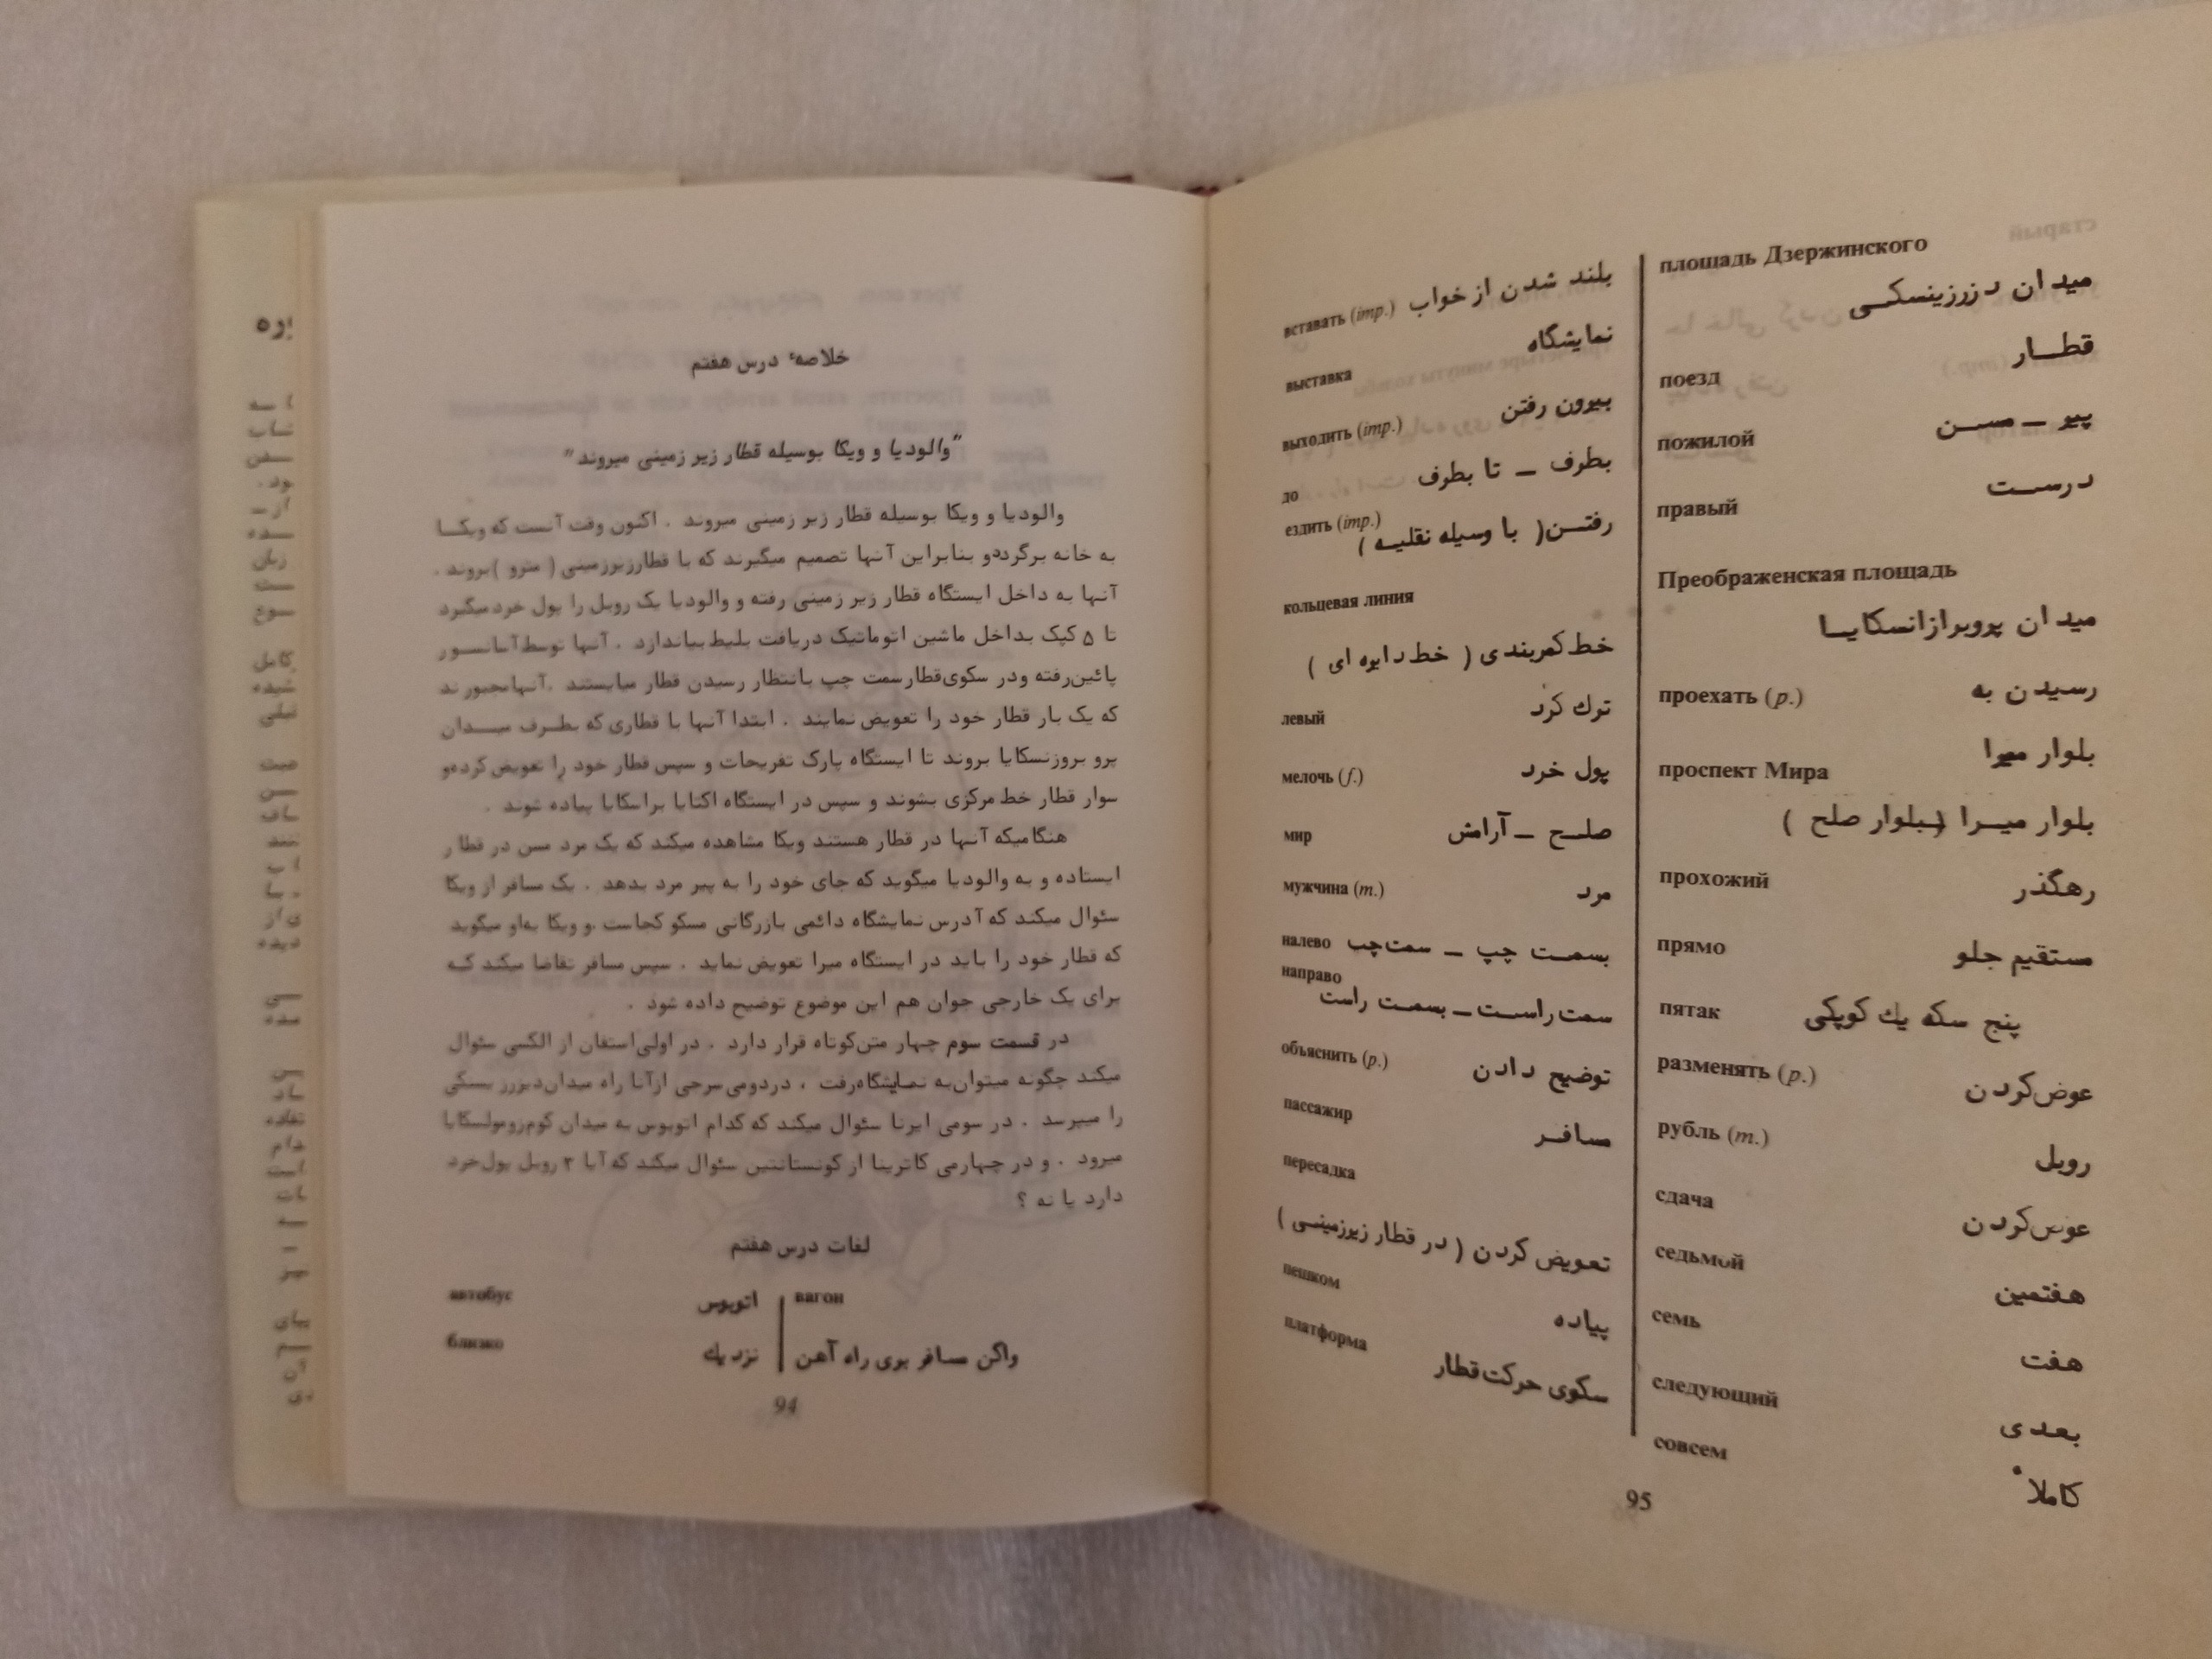 خلاصهٔ درس هفتم
"والودیا و ویکا بوسیله قطار زیر زمینی میروند"
والودیا و ویکا بوسیله قطار زیر زمینی میروند . اکنون وقت آنست که ویکــا
به خانه برگردو و بنابراین آنها تصمیم میگیرند که با قطارزیرزمینی ( مترو )بروند .
آنها به داخل ایستگاه قطار زیر زمینی رفته و والودیا یک روبل را پول خردمیگیرد
تا ۵ کپک بداخل ماشین اتوماتیک دریافت بلیط بیاندازد . آنها توسط آسانســور
پائین‌رفته ودر سکوی‌قطارسمت چپ بانتظار رسیدن قطار میایستند .آنهامجبورند
که یک بار قطار خود را تعویض نمایند . ابتدا آنها با قطاری که بطـرف میــدان
پرو بروزنسکایا بروند تا ایستگاه پارک تفریحات و سپس قطار خود را تعویض کرده‌و
سوار قطار خط مرکزی بشوند و سپس در ایستگاه اکتایا براسکایا پیاده شوند .
هنگامیکه آنها در قطار هستند ویکا مشاهده میکند که یک مرد مسن در قطار
ایستاده و به والودیا میگوید که جای خود را به پیر مرد بدهد . یک مسافر از ویکا
سئوال میکند که آدرس نمایشگاه دائمی بازرگانی مسکو کجاست .و ویکا به‌او میگوید
که قطار خود را باید در ایستگاه میرا تعویض نماید . سپس مسافر تقاضا میکند کـه
برای یک خارجی جوان هم این موضوع توضیح داده شود .
در قسمت سوم چهار متن‌کوتاه قرار دارد . در اولی‌استفان از الکسی سئوال
میکند چگونه میتوان‌به نمایشگاه‌رفت ، دردومی‌سرجی ازآنا راه میدان‌دیزرژینسکی
را میپرسد . در سومی ایرنا سئوال میکند که کدام اتوبوس به میدان کوم‌زومولسکایا
میرود . و در چهارمی کاترینا از کونستانتین سئوال میکند که آیا ۲ روبل پول‌خرد
دارد یا نه ؟
لغات درس هفتم
автобус
اتوبوس
близко
نزدیك
вагон
واگن مسافر بری راه آهن
94
вставать (imp.) بلند شدن از خواب
نمایشگاه
выставка
выходить (imp.) بیرون رفتن
до بطرف ــ تا بطرف
ездить (imp.)
رفتــن( با وسیله نقلیـه )
кольцевая линия
خط کمربندی ( خط دایره ای )
левый ترك کرد
мелочь (f.) پول خرد
мир صلــح ــ آرامش
мужчина (m.) مرد
налево بسمـت چپ ــ سمت‌چپ
направо
سمت راســت ــ بسمـت راست
объяснить (p.) توضیح دادن
пассажир
مسافـر
пересадка
تعویض کردن ( در قطار زیرزمینـی )
пешком
پیاده
платформа
سکوی حرکت‌قطار
площадь Дзержинского
میدان دزرزینسکـی
قطــار
поезд
пожилой پیر ــ مســن
правый درســت
Преображенская площадь
میدان پروبراژانسکایــا
проехать (p.) رسیدن به
بلوار میرا
проспект Мира
بلوار میــرا (بلوار صلح )
прохожий رهگذر
прямо مستقیم جلو
пятак پنج سکه یك کوپکی
разменять (p.) عوض‌کردن
рубль (m.)
روبل
сдача
عوض‌کردن
седьмой
هفتمین
семь
هفت
следующий
بعدی
совсем
کاملاً
95